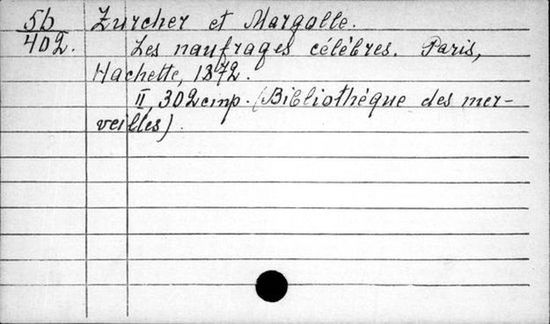 56
402.
Zurcher et Margolle.
Les naufrages célèbres. Paris,
Hachette, 1872.
II, 302 cmp. (Bibliothéque des mer-
veilles).